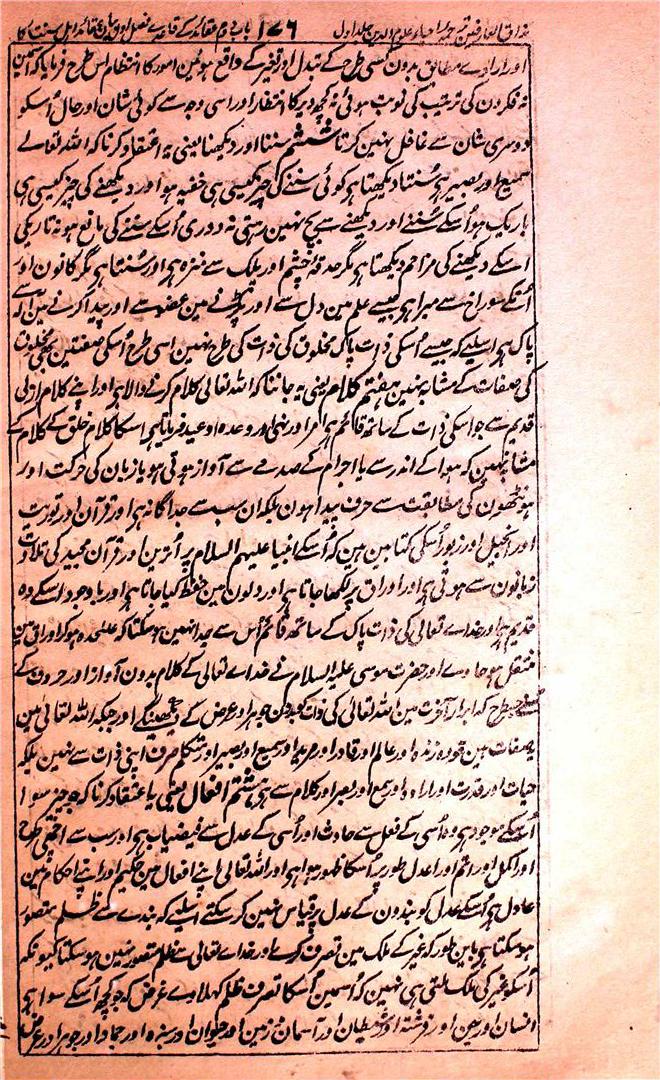 مذاق العارفین ترجمہ احیاء علوم الدین جلد اول ۱۷۶ باب دوم عقائد کے قاعدے فصل اول بیان عقائد اہل سنت کا
اور ارادے مطابق بدون کسی طرح کے تبدل اور تغیر کے واقع ہوئین امور کا انتظام اس طرح فرمایا کہ اسمین
نہ فکرون کی ترتیب کی نوبت ہوئی نہ کچھ دیر کا انتظار اور اسی وجہ سے کوئی شان اور حال اُسکو
دوسری شان سے غافل نہین کرتا ششم سننا اور دیکھنا یعنی یہ اعتقاد کرنا کہ اللہ تعالے
سمیع اور بصیر ہی سُنتا دیکھتا ہی کوئی سننے کی چیز کیسی ہی خفیہ ہو اور دیکھنے کی چیز کیسی ہی
باریک ہو اُسکے سُننے اور دیکھنے سے بچ نہین رہتی نہ دوری اُسکے سننے کی مانع ہو نہ تاریکی
اسکے دیکھنے کی مزاحم دیکھتا ہی مگر حدقۂ چشم اور پلک سے منزہ ہی اور سُنتا ہی مگر کانون اور
اُنکے سوراخ سے مبرا ہی جیسے علم مین دل سے اور پکڑنے مین عضو سے اور پیدا کرنے مین آلہ سے
پاک ہی اسلیے کہ جیسے اُسکی ذات پاک مخلوق کی ذات کی طرح نہین اسی طرح اُسکی صفتین بھی مخلوق
کی صفات کے مشابہ نہین ہفتم کلام یعنی یہ جاننا کہ اللہ تعالی کلام کرنے والا ہی اور اپنے کلام ازلی
قدیم سے جو اسکی ذات کے ساتھ قائم ہی امر اور نہی اور وعدہ اور وعید فرماتا ہی اسکا کلام خلق کے کلام کے
مشابہ نہین کہ ہوا کے اندر سے یا اجرام کے صدمے سے آواز ہوتی ہو یا زبان کی حرکت اور
ہونٹھون کی مطابقت سے حرف پیدا ہون بلکہ ان سب سے جداگانہ ہی اور قرآن اور توریت
اور انجیل اور زبور اُسکی کتابین ہین کہ اُسکے انبیا علیہم السلام پر اُترین اور قرآن مجید کی تلاوت
زبانون سے ہوتی ہی اور اوراق پر لکھا جاتا ہی اور دلون مین حفظ کیا جاتا ہی اور باوجود اسکے وہ
قدیم ہی اور خداے تعالی کی ذات پاک کے ساتھ قائم اُس سے جدا نہین ہو سکتا کہ علیحدہ ہو کر اوراق مین
منتقل ہو جاوے اور حضرت موسی علیہ السلام نے خداے تعالی کے کلام بدون آواز اور حروف کے
جسطرح کہ ابرار آخرت مین اللہ تعالی کی ذات کو بدون جوہر اور عرض کے دیکھینگے اور جبکہ اللہ تعالی مین
یہ صفات ہین تو وہ زندہ اور عالم اور قادر اور مرید اور سمیع اور بصیر اور متکلم صرف اپنی ذات سے نہین بلکہ
حیات اور قدرت اور ارادہ اور سمع اور بصر اور کلام سے ہی ہشتم افعال یعنی یہ اعتقاد کرنا کہ جو چیز سوا
اُسکے موجود ہی وہ اُسی کے فعل سے حادث اور اُسی کے عدل سے فیضیاب ہی اور سب سے اچھی طرح
اور اکمل اور اتم اور اعدل طور پر اُسکا ظہور ہوا ہی اور اللہ تعالی اپنے افعال مین حکیم اور اپنے احکام مین
عادل ہی اُسکے عدل کو بندون کے عدل پر قیاس نہین کر سکتے اسلیے کہ بندے سے ظلم متصور
ہو سکتا ہی باین طور کہ غیر کے ملک مین تصرف کرے اور خداے تعالی سے ظلم متصور نہین ہو سکتا کیونکہ
اُسکو غیر کی ملک ملتی ہی نہین کہ اُسمین اُسکا تصرف ظلم کہلاوے غرض کہ جو کچھ اُسکے سوا ہی
انسان اور جن اور فرشتہ اور شیطان اور آسمان و زمین اور حیوان اور سبزہ اور جماد اور جوہر اور عرض